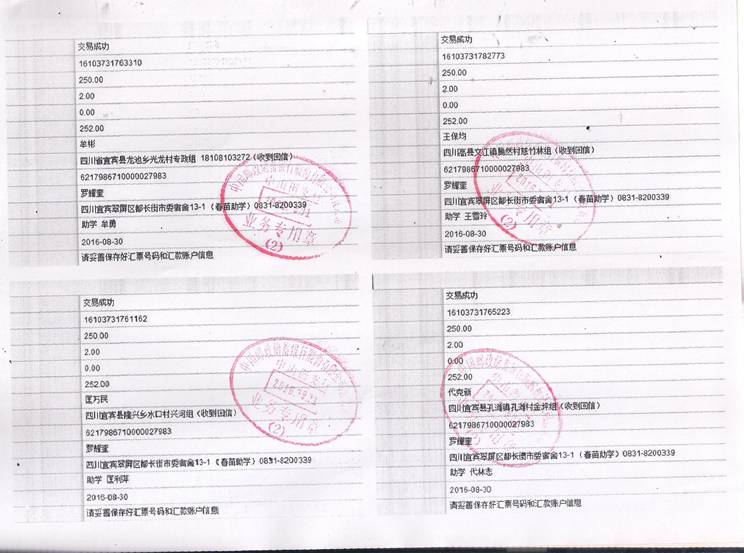 交易成功
16103731763310
250.00
2.00
0.00
252.00
牟彬
四川省宜宾县龙池乡光龙村专政组 18108103272(收到回信)
6217986710000027983
罗耀奎
四川宜宾翠屏区都长街市委宿舍13-1(春苗助学)0831-8200339
助学 牟勇
2016-08-30
请妥善保存好汇票号码和汇款账户信息
业务专用章
(2)
交易成功
16103731782773
250.00
2.00
0.00
252.00
王保均
6217986710000027983
罗耀奎
四川宜宾翠屏区都长街市委宿舍13-1(春苗助学)0831-8200339
助学 王雪玲
2016-08-30
请妥善保存好汇票号码和汇款账户信息
(2)
交易成功
16103731761162
250.00
2.00
0.00
252.00
匡万民
四川宜宾县隆兴乡水口村兴河组(收到回信)
6217986710000027983
罗耀奎
四川宜宾翠屏区都长街市委宿舍13-1(春苗助学)0831-8200339
助学 匡利萍
2016-08-30
请妥善保存好汇票号码和汇款账户信息
业务专用章
(2)
交易成功
16103731765223
250.00
2.00
0.00
252.00
代克新
四川宜宾县孔滩镇孔滩村金坪组(收到回信)
6217986710000027983
罗耀奎
四川宜宾翠屏区都长街市委宿舍13-1(春苗助学)0831-8200339
助学 代林志
2016-08-30
请妥善保存好汇票号码和汇款账户信息
(2)